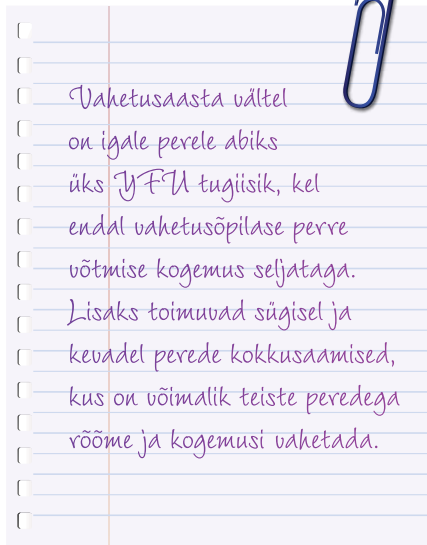 Vahetusaasta vältel
on igale perele abiks
üks YFU tugiisik, kel
endal vahetusõpilase perre
võtmise kogemus seljataga.
Lisaks toimuvad sügisel ja
kevadel perede kokkusaamised,
kus on võimalik teiste peredega
rõõme ja kogemusi vahetada.